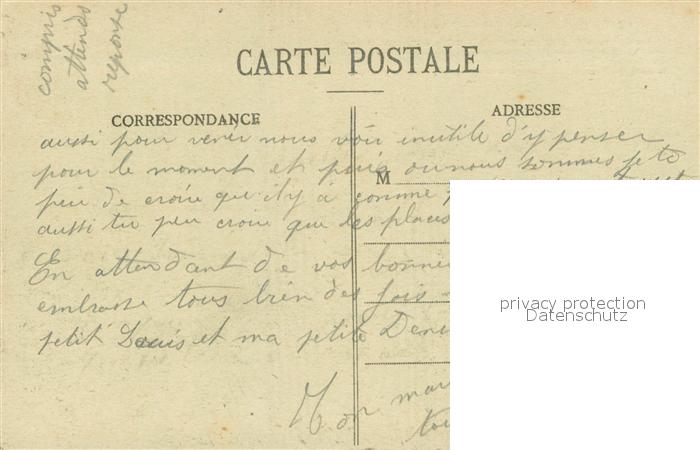 compris
attends
reponse
CARTE POSTALE
CORRESPONDANCE
ADRESSE
aussi pour venir nous voir inutile d'y penser
pour le moment et puis ou nous sommes je te
M
peu de croire que il y à comme
aussi tu peu croire que les places
En attendant de vos bonnes
embrasse tous bien des fois
petit Louis et ma petite Deni
Mon mari
tou
privacy protection
Datenschutz